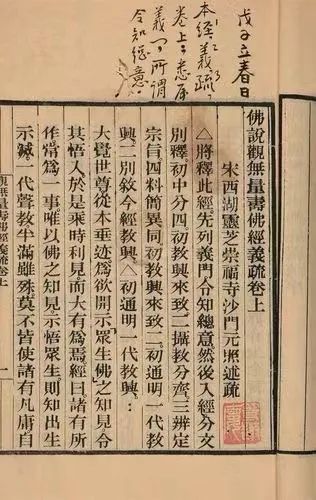 戊子立春日
本經義疏
卷上
義一、所謂
令知總意
佛說觀無量壽佛經義疏卷上
宋西湖靈芝崇福寺沙門元照述疏
△將釋此經先列義門令知總意然後入經分文
別釋。初中分四。初教興來致。二攝教分齊。三辨定
宗旨。四料簡異同。初教興來致二。初通明一代教
興。二別敘今經教興。△初通明一代教興。
大覺世尊從本垂迹。爲欲開示眾生佛之知見。令
其悟入。於是乘時利見。而大有爲焉。經曰。諸有所
作。常爲一事。唯以佛之知見。示悟眾生。則知出生
示滅。一代聲教。半滿雖殊。莫不皆使諸有凡庸。自
無量壽佛經義疏卷上
一